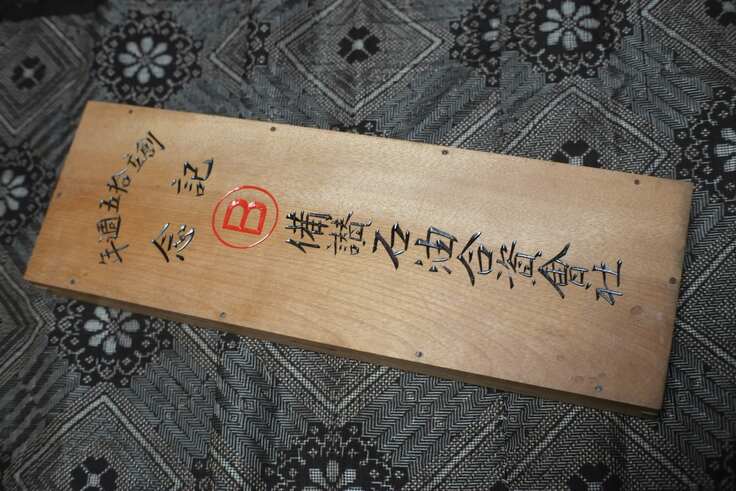 創立拾五週年
記念
B
備讃石油合資會社